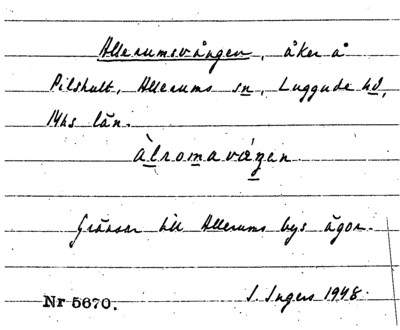 Allerumsvången, åker å
Pilshult, Allerums sn, Luggude hd,
Mhs län.
àlromavág̲en
Gränsar till Allerums bys ägor.
Nr 5670. I. Ingers 1948.